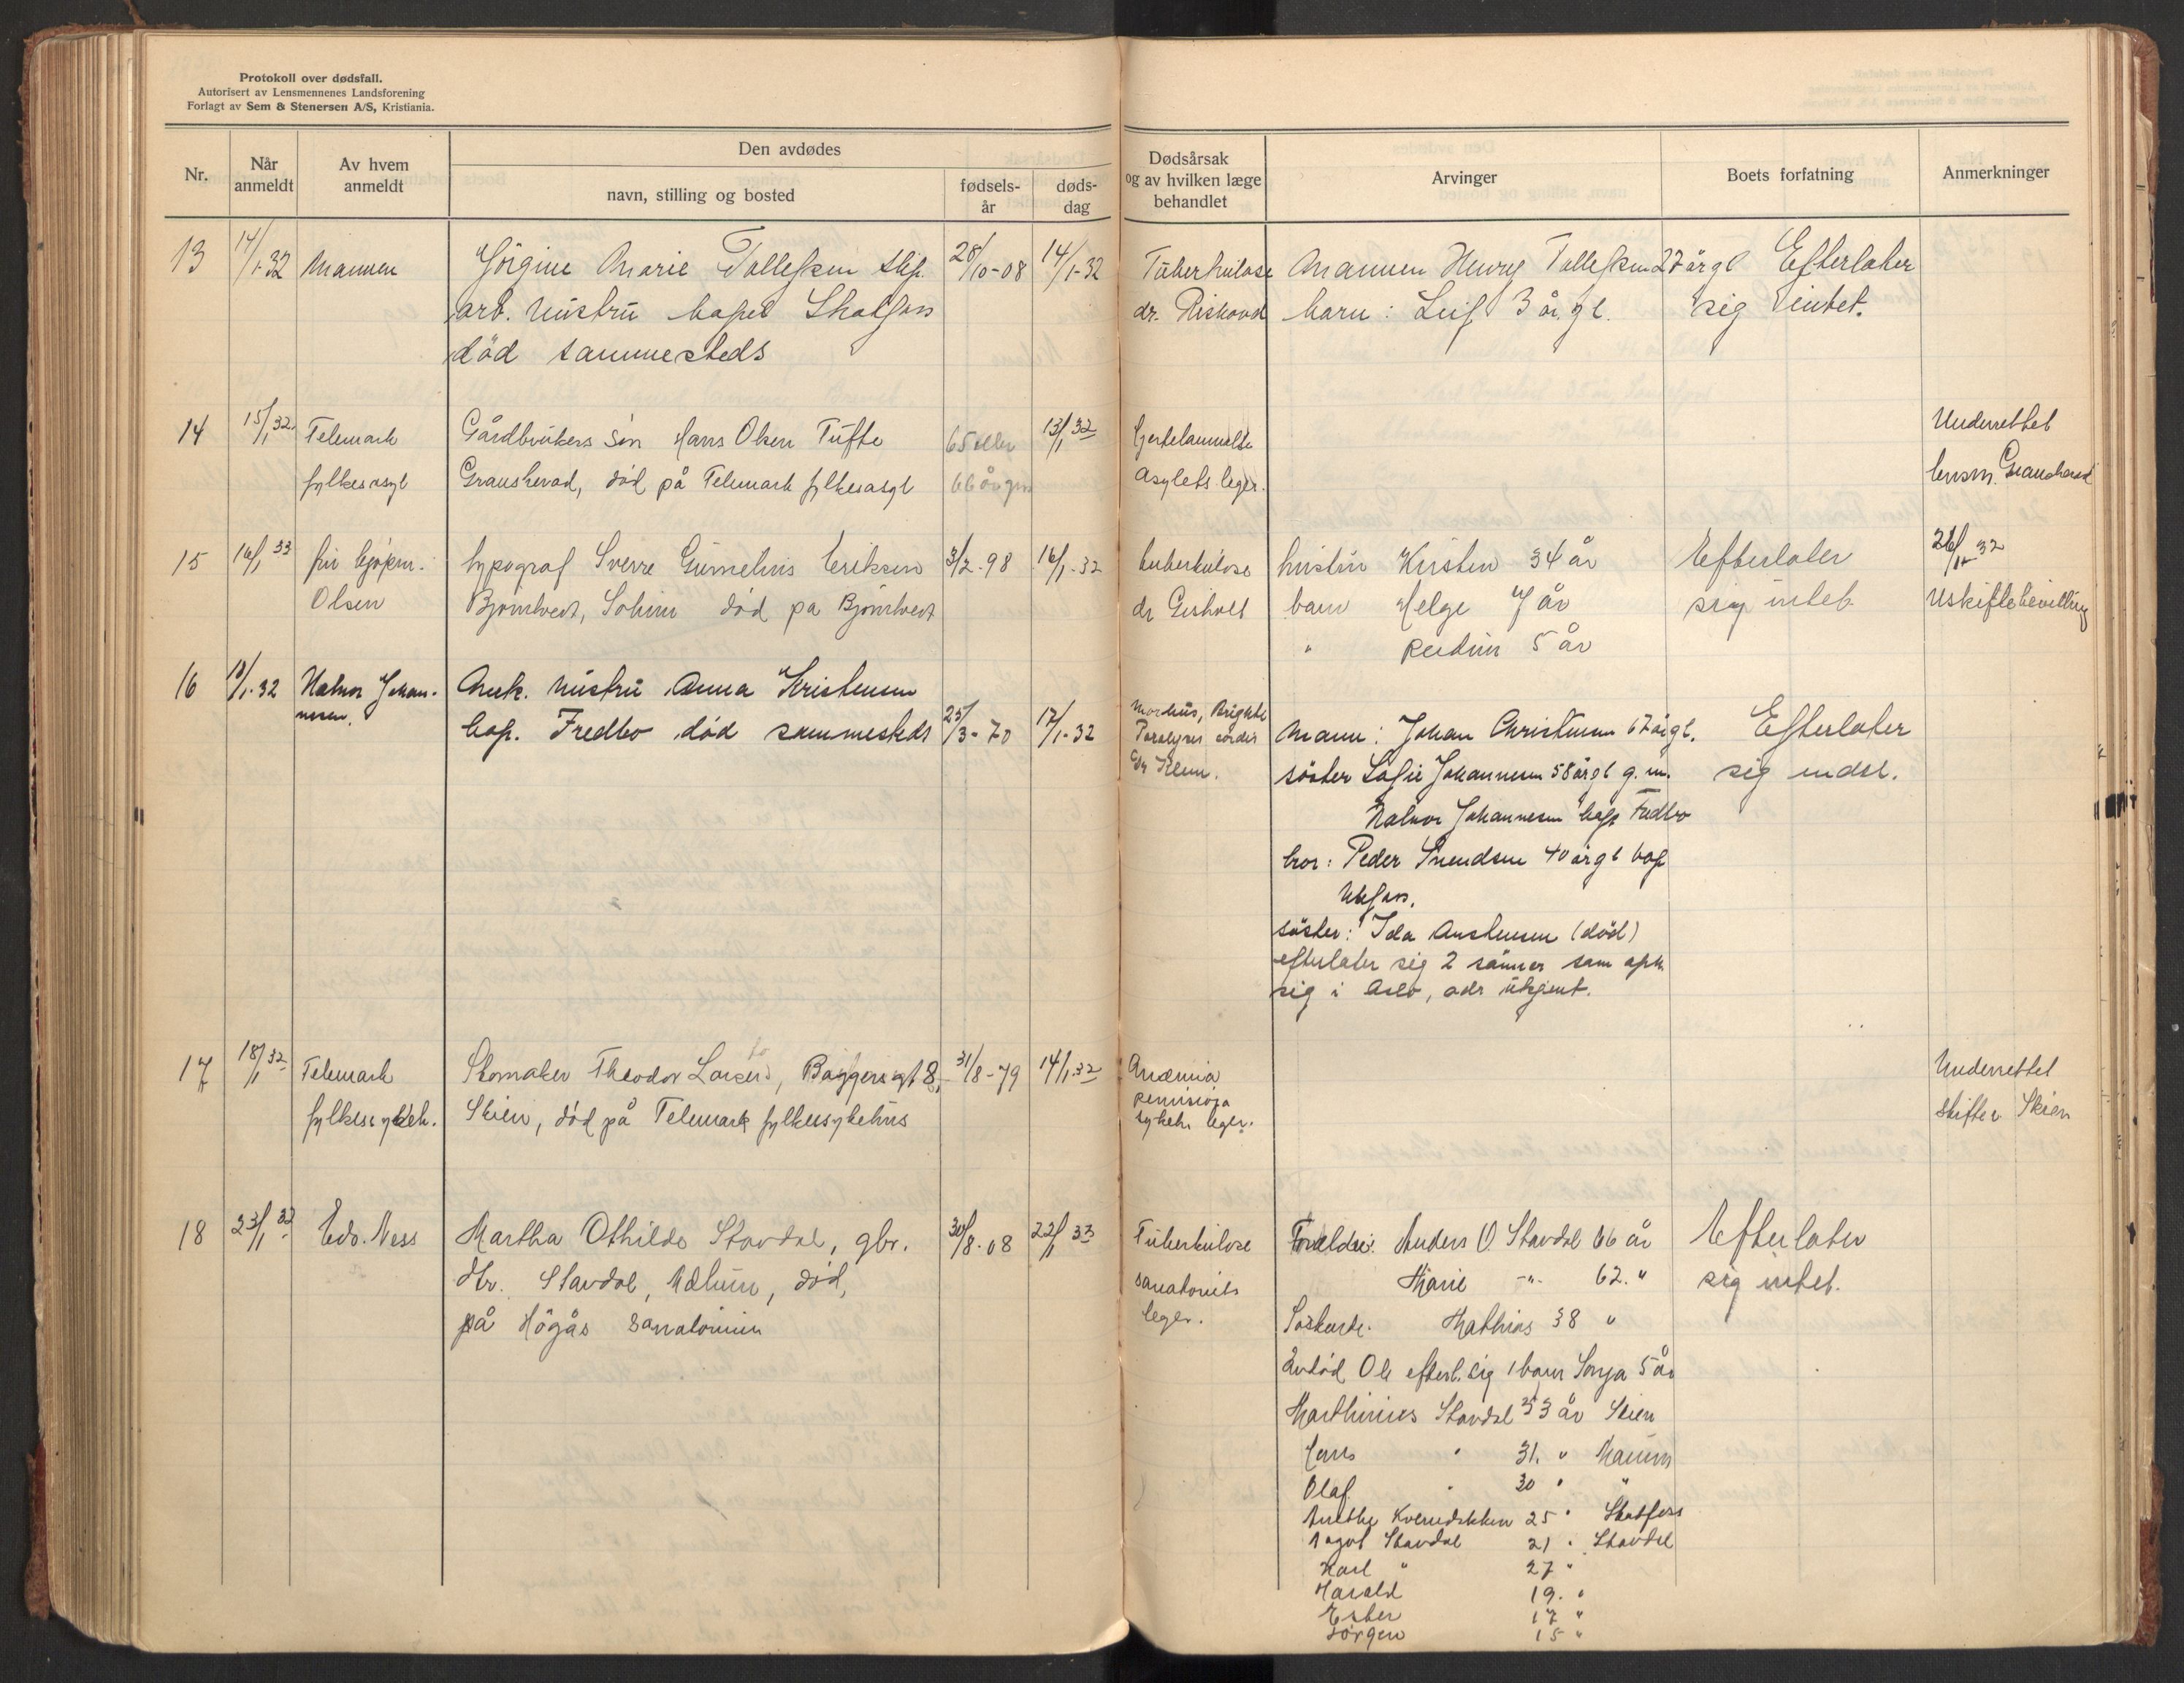 Protokoll over dødsfall.
Autorisert av Lensmennenes Landsforening
Forlagt av Sem & Stenersen A/S, Kristiania.
Nr.
Når anmeldt
Av hvem anmeldt
Den avdødes
navn, stilling og bosted
fødsels-år
døds-dag
Dødsårsak og av hvilken læge behandlet
Arvinger
Boets forfatning
Anmerkninger
13 14/1-32 Mannen Jörgine Marie Tollefsen 28/10-08 14/1-32 Tuberkulose Mannen Henry Tollefsen 27 årgl Efterlater
arb. hustru bopel Skotfoss dr. Riskovd barn: Leif 3 år gl. sig intet.
död sammesteds
14 15/1 32 Telemark Gårdbrukers sön Hans Olsen Tufte 65 eller 13/1 32 Hjertelammelse Underrettet
fylkesasyl Gransherad, död på Telemark fylkesasyl 66 år gm asylets leger. lensm. Gransherad
15 16/1 33 fru kjöpm. typograf Sverre Gumelius Eriksen 3/2-98 16/1-32 tuberkulose hustru Kirsten 34 år Efterlater 26/1 32
Olsen Bjömtvedt, Solum död på Bjömtvedt dr Gisholt barn Helge 7 år sig intet Uskiftebevilling
" Reidun 5 år
16 18/1-32 Halvor Johannesen. Enk. hustru Anna Kristensen
bop. Fredbo död sammesteds 25/3-70 17/1-32 Morbus, Brighti Mann: Johan Christensen 67 årgl. Efterlater
Paralyses cordis
dr Klem. söster Sofie Johannesen 58 årgl g. m. sig indet.
Halvor Johannesen bop Fredbo
bror: Peder Svendsen 40 årgl bop
Ulefoss.
söster: Ida Austensen (död)
efterlater sig 2 sönner som oph.
sig i Oslo, adr ukjent.
17 18/1 32 Telemark Skomaker Theodor Larsen, Bøygersgt 8, 31/8-79 14/1 32 Anæmia Underrettet
fylkessykeh. Skien, död på Telemark fylkessykehus pernisiosa skifter. Skien
sykeh. leger.
18 23/1 32 Edv. Ness Martha Othilde Stavdal, gbr. 30/8-08 22/1 33 Tuberkulose Foreldre: Anders O. Stavdal 66 år Efterlater
dtr. Stavdal, Mælum, död, sanatoriets Marie -"- 62. " sig intet.
på Högås sanatorium leger. Söskende. Mathias 38 "
Avdöd Ole efterl. sig 1 barn Sonja 5 år
Marthinius Stavdal 33 år Skien
Hans " 31. " Mælum
Olaf " 30 " "
Anethe Kverndokken 25 " Skotfoss
Dagot Stavdal 21 " Stavdal
Karl " 27 "
Harald 19. "
Ester 17 "
Jörgen 15 "